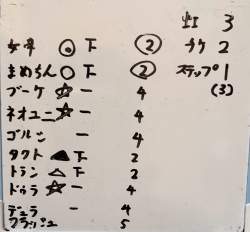 虹 3
女帝 ◎ 下 ② チケ 2
まめちん ○ 下 ② ステップ 1
ブーケ ☆ ー 4 (3)
ネオユニ ☆ ー 4
ゴルシ ー 4
タクト ▲ 下 2
トラン △ 下 2
ドゥラ ☆ ー 4
デュラ ー 4
フラッシュ 5